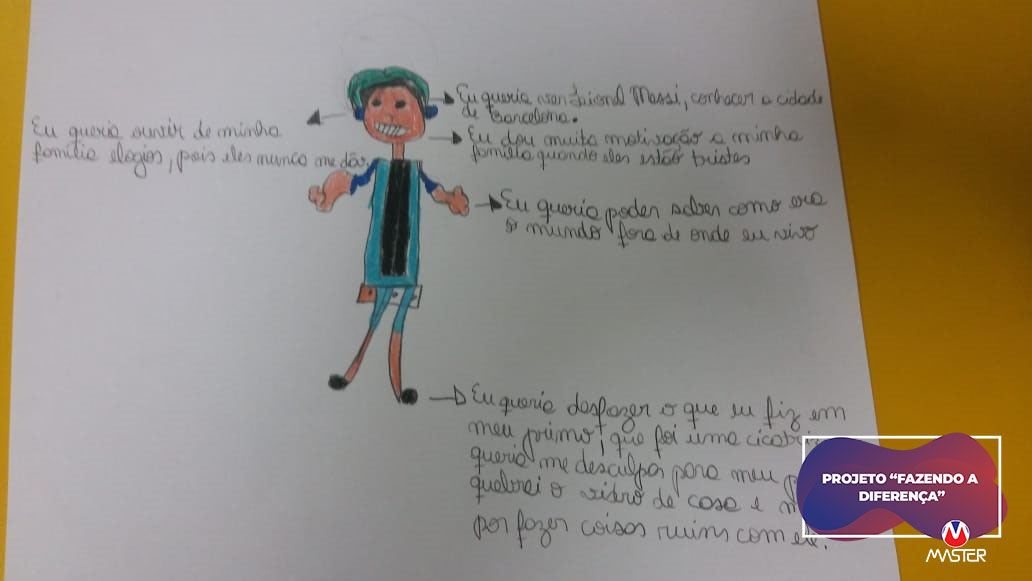 Eu queria ver Leionel Messi, conhecer a cidade
de Barcelona.
Eu queria ouvir de minha
família elogios, pois eles nunca me dão.
Eu dou muita motivação a minha
família quando eles estão tristes
Eu queria poder saber como era
o mundo fora de onde eu vivo
Eu queria desfazer o que eu fiz em
meu primo, que foi uma
queria me desculpar para meu
quebrei o vidro de casa e
por fazer coisas ruins com ele.
PROJETO “FAZENDO A
DIFERENÇA”
MASTER